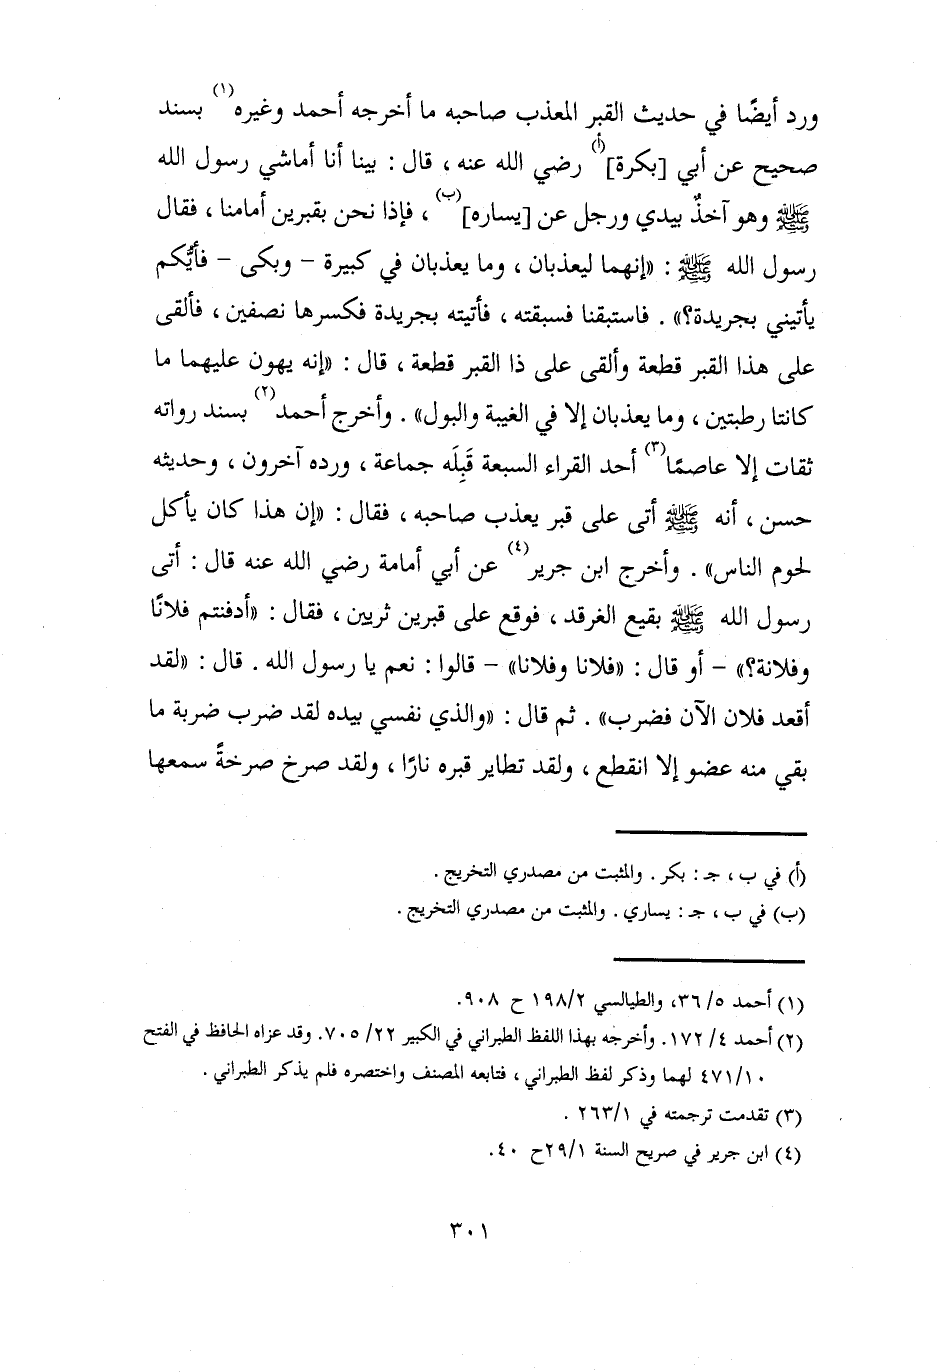 ورد أيضًا في حديث القبر المعذب صاحبه ما أخرجه أحمد وغيره(١) بسند
صحيح عن أبي [بكرة](أ) رضي الله عنه ، قال : بينا أنا أماشي رسول الله
ﷺ وهو آخذٌ بيدي ورجل عن [يساره](ب) ، فإذا نحن بقبرين أمامنا ، فقال
رسول الله ﷺ : «إنهما ليعذبان ، وما يعذبان في كبيرة - وبكى - فأيُّكم
يأتيني بجريدة؟» . فاستبقنا فسبقته ، فأتيته بجريدة فكسرها نصفين ، فألقى
على هذا القبر قطعة وألقى على ذا القبر قطعة ، قال : «إنه يهون عليهما ما
كانتا رطبتين ، وما يعذبان إلا في الغيبة والبول» . وأخرج أحمد(٢) بسند رواته
ثقات إلا عاصمًا(٣) أحد القراء السبعة قَبِلَه جماعة ، ورده آخرون ، وحديثه
حسن ، أنه ﷺ أتى على قبر يعذب صاحبه ، فقال : «إن هذا كان يأكل
لحوم الناس» . وأخرج ابن جرير(٤) عن أبي أمامة رضي الله عنه قال : أتى
رسول الله ﷺ بقيع الغرقد ، فوقع على قبرين ثريين ، فقال : «أدفنتم فلانًا
وفلانة؟» - أو قال : «فلانا وفلانا» - قالوا : نعم يا رسول الله . قال : «لقد
أقعد فلان الآن فضرب» . ثم قال : «والذي نفسي بيده لقد ضرب ضربة ما
بقي منه عضو إلا انقطع ، ولقد تطاير قبره نارًا ، ولقد صرخ صرخةً سمعها
(أ) في ب ، جـ : بكر . والمثبت من مصدري التخريج .
(ب) في ب ، جـ : يساري . والمثبت من مصدري التخريج .
(١) أحمد ٥/ ٣٦، والطيالسي ١٩٨/٢ ح ٩٠٨.
(٢) أحمد ٤/ ١٧٢. وأخرجه بهذا اللفظ الطبراني في الكبير ٢٢/ ٧٠٥. وقد عزاه الحافظ في الفتح
٤٧١/١٠ لهما وذكر لفظ الطبراني ، فتابعه المصنف واختصره فلم يذكر الطبراني .
(٣) تقدمت ترجمته في ٢٦٣/١ .
(٤) ابن جرير في صريح السنة ٢٩/١ح ٤٠.
٣٠١